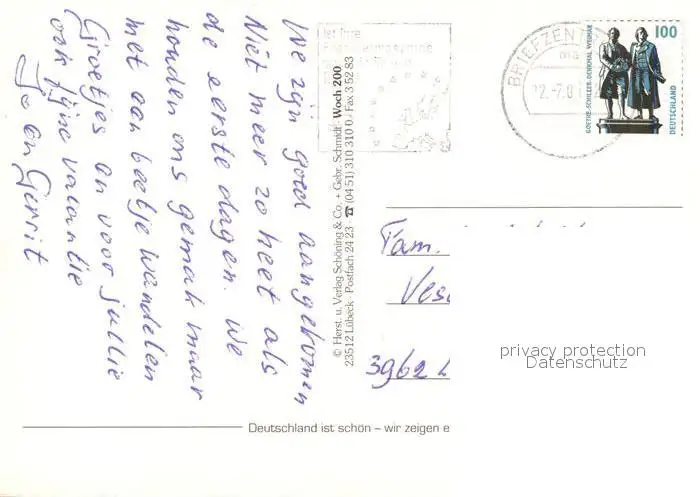 We zijn goed aangekomen
Niet meer zo heet als
de eerste dagen. We
houden ons gemak maar
met een beetje wandelen
Groetjes en voor jullie
ook fijne vacantie
Jo en Gerrit
© Herst. u. Verlag Schöning & Co. + Gebr. Schmidt · Woch 200
23512 Lübeck · Postfach 24 23 · ☎ (04 51) 310 310 0 · Fax 3 52 83
BRIEFZENT
GOETHE-SCHILLER-DENKMAL WEIMAR
100
DEUTSCHLAND
Fam.
3962
privacy protection
Datenschutz
Deutschland ist schön – wir zeigen e